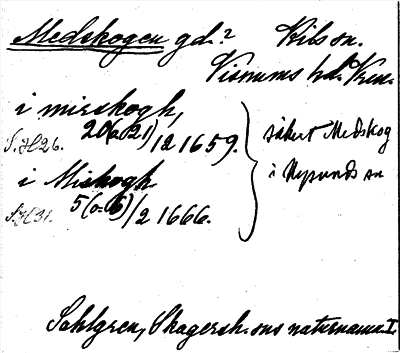 Medskogen gd.? Kils sn.
Visnums hd. Krm.
i mirskogh,
S. H 26. 20(o. 21)/12 1659.
i Miskogh
S. H 31. 5(o. 6)/2 1666.
säkert Medskog
i Nysunds sn
Sahlgren, Skagersh. sns naturnamn I.